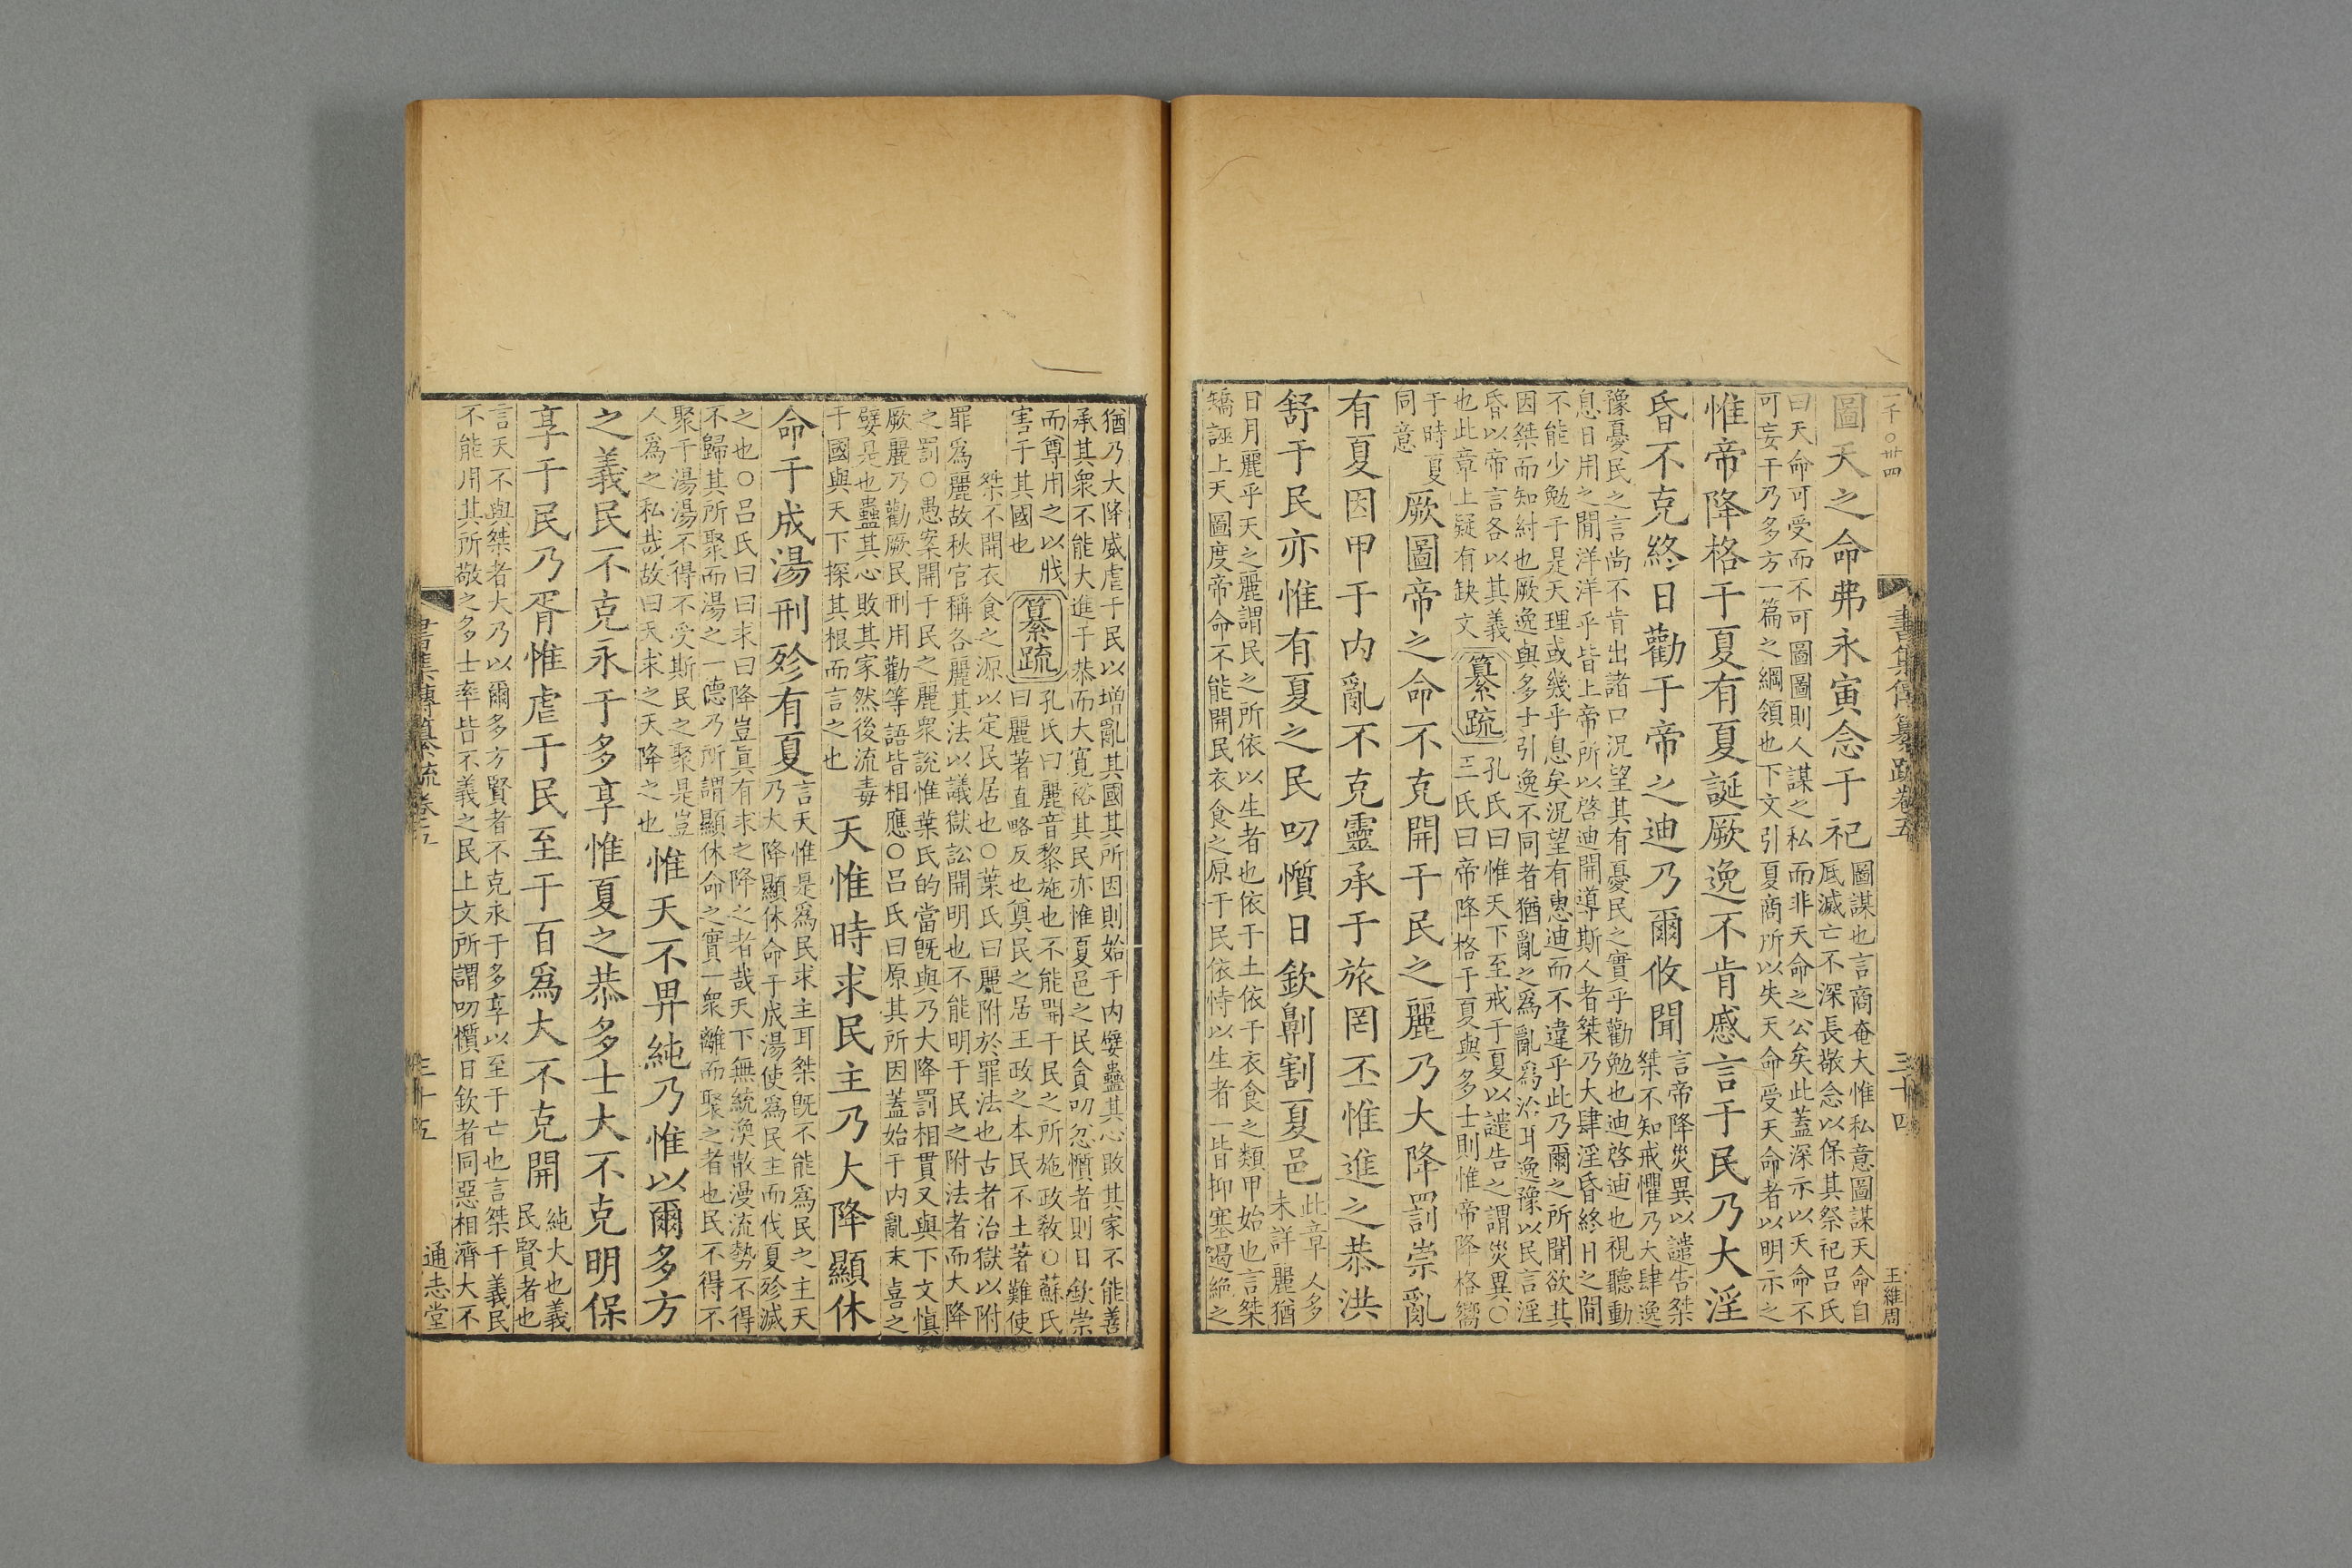 一千〇卅四
書集傳纂疏卷五
三十四
王維周
圖天之命弗永寅念于祀
圖謀也言商奄大惟私意圖謀天命自
厎滅亡不深長敬念以保其祭祀呂氏
曰天命可受而不可圖圖則人謀之私而非天命之公矣此蓋深示以天命不
可妄干乃多方一篇之綱領也下文引夏商所以失天命受天命者以明示之
惟帝降格于夏有夏誕厥逸不肯慼言于民乃大淫
昏不克終日勸于帝之迪乃爾攸聞
言帝降災異以譴告桀
桀不知戒懼乃大肆逸
豫憂民之言尚不肯出諸口況望其有憂民之實乎勸勉也迪啓迪也視聽動
息日用之閒洋洋乎皆上帝所以啓迪開導斯人者桀乃大肆淫昏終日之間
不能少勉于是天理或幾乎息矣況望有惠迪而不違乎此乃爾之所聞欲其
因桀而知紂也厥逸與多士引逸不同者猶亂之爲亂爲治耳逸豫以民言淫
昏以帝言各以其義
也此章上疑有缺文
纂疏
孔氏曰惟天下至戒于夏以譴告之謂災異○
王氏曰帝降格于夏與多士則惟帝降格嚮
于時夏
同意
厥圖帝之命不克開于民之麗乃大降罰崇亂
有夏因甲于内亂不克靈承于旅罔丕惟進之恭洪
舒于民亦惟有夏之民叨懫日欽劓割夏邑
此章人多
未詳麗猶
日月麗乎天之麗謂民之所依以生者也依于土依于衣食之類甲始也言桀
矯誣上天圖度帝命不能開民衣食之原于民依恃以生者一皆抑塞遏絶之
猶乃大降威虐于民以增亂其國其所因則始于内嬖蠱其心敗其家不能善
承其衆不能大進于恭而大寬裕其民亦惟夏邑之民貪叨忿懫者則日欽崇
而尊用之以戕
害于其國也
纂疏
孔氏曰麗音黎施也不能開于民之所施政敎○蘇氏
曰麗著直略反也奠民之居王政之本民不土著難使
桀不開衣食之源以定民居也○葉氏曰麗附於罪法也古者治獄以附
罪爲麗故秋官稱各麗其法以議獄訟開明也不能明于民之附法者而大降
之罰○愚案開于民之麗衆説惟葉氏的當旣與乃大降罰相貫又與下文愼
厥麗乃勸厥民刑用勸等語皆相應○呂氏曰原其所因蓋始于内亂末喜之
嬖是也蠱其心敗其家然後流毒
于國與天下探其根而言之也
天惟時求民主乃大降顯休
命于成湯刑殄有夏
言天惟是爲民求主耳桀旣不能爲民之主天
乃大降顯休命于成湯使爲民主而伐夏殄滅
之也○呂氏曰曰求曰降豈眞有求之降之者哉天下無統渙散漫流勢不得
不歸其所聚而湯之一德乃所謂顯休命之實一衆離而聚之者也民不得不
聚于湯湯不得不受斯民之聚是豈
人爲之私哉故曰天求之天降之也
惟天不畀純乃惟以爾多方
之義民不克永于多享惟夏之恭多士大不克明保
享于民乃胥惟虐于民至于百爲大不克開
純大也義
民賢者也
言天不與桀者大乃以爾多方賢者不克永于多享以至于亡也言桀于義民
不能用其所敬之多士率皆不義之民上文所謂叨懫日欽者同惡相濟大不
書集傳纂疏卷五
三十五
通志堂